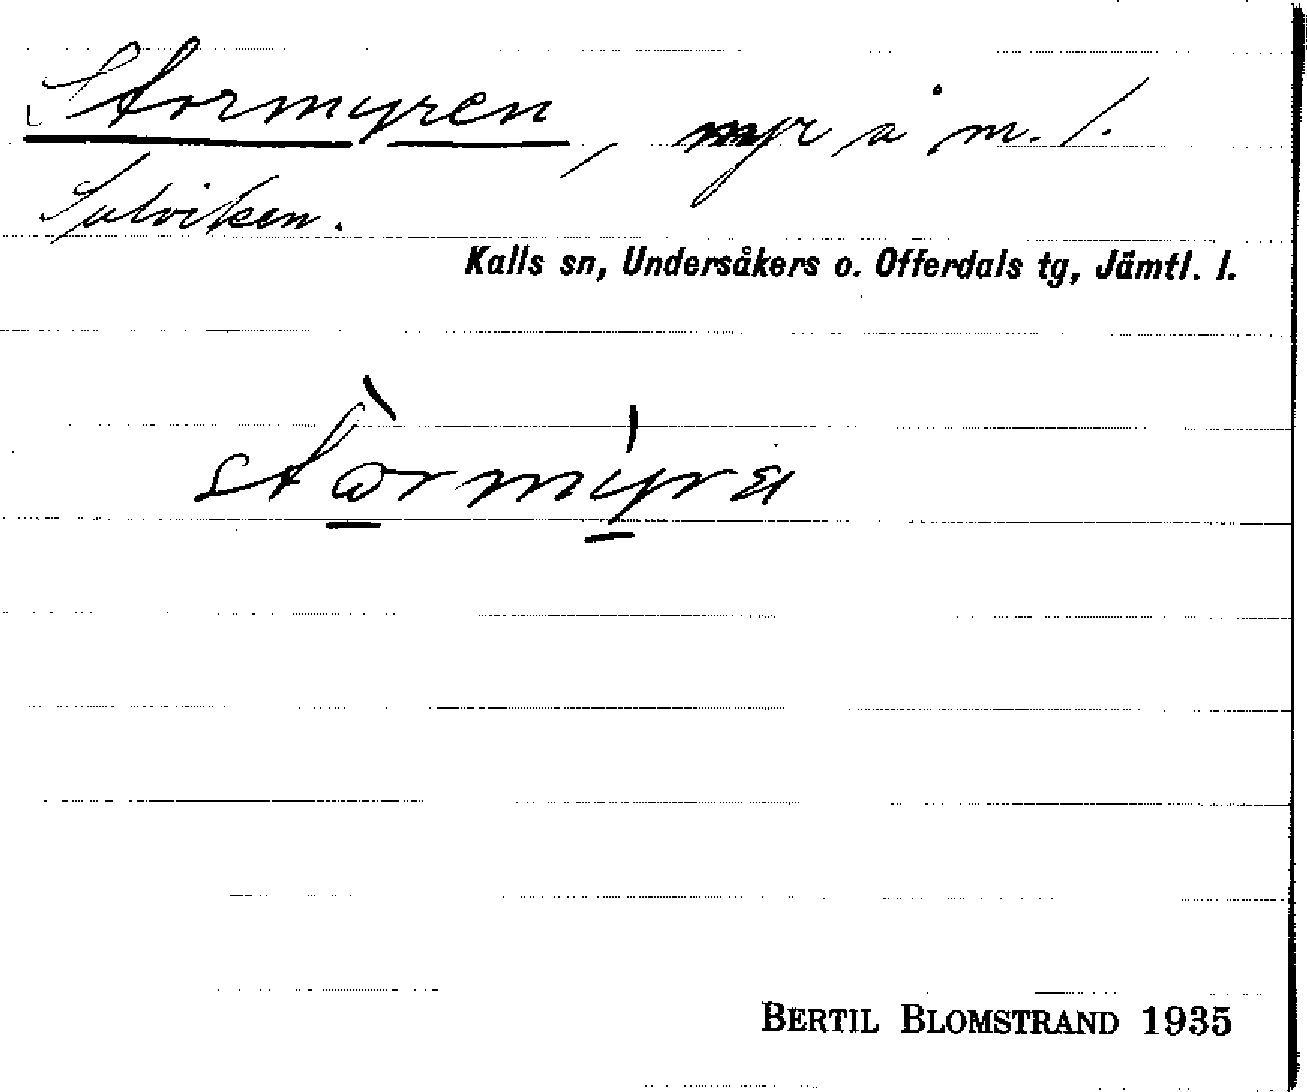 Stormyren, myr å m. l.
Sulviken.
Kalls sn, Undersåkers o. Offerdals tg, Jämtl. l.
BERTIL BLOMSTRAND 1935